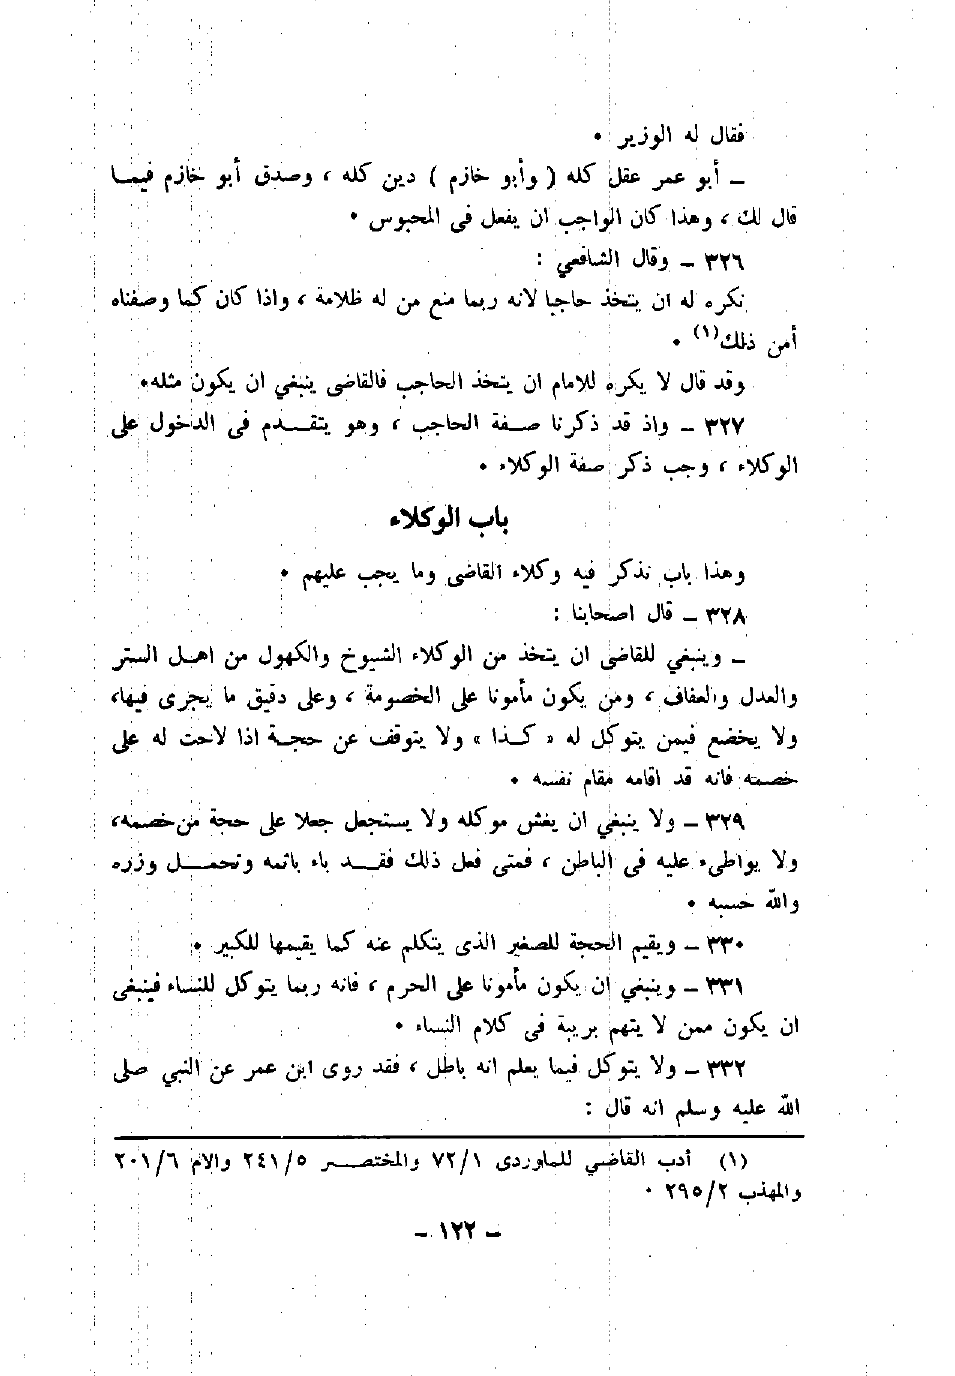 فقال له الوزير •
ـ أبو عمر عقل كله ( وأبو خازم ) دين كله ، وصدق أبو خازم فيمـا
قال لك ، وهذا كان الواجب ان يفعل فى المحبوس •
٣٢٦ ـ وقال الشافعي :
نكره له ان يتخذ حاجبا لانه ربما منع من له ظلامة ، واذا كان كما وصفناه
أمن ذلك(١) •
وقد قال لا يكره للامام ان يتخذ الحاجب فالقاضى ينبغي ان يكون مثله•
٣٢٧ ـ واذ قد ذكرنا صـفة الحاجب ، وهو يتقـــدم فى الدخول على
الوكلاء ، وجب ذكر صفة الوكلاء •
باب الوكلاء
وهذا باب نذكر فيه وكلاء القاضى وما يجب عليهم •
٣٢٨ ـ قال اصحابنا :
ـ وينبغي للقاضى ان يتخذ من الوكلاء الشيوخ والكهول من اهـل الستر
والعدل والعفاف ، ومن يكون مأمونا على الخصومة ، وعلى دقيق ما يجرى فيها،
ولا يخضع فيمن يتوكل له « كـذا » ولا يتوقف عن حجـة اذا لاحت له على
خصمه فانه قد اقامه مقام نفسه •
٣٢٩ ـ ولا ينبغي ان يغش موكله ولا يستجعل جعلا على حجة من خصمه،
ولا يواطىء عليه فى الباطن ، فمتى فعل ذلك فقـــد باء باثمه وتحمـــل وزره
والله حسبه •
٣٣٠ ـ ويقيم الحجة للصغير الذى يتكلم عنه كما يقيمها للكبير •
٣٣١ ـ وينبغي ان يكون مأمونا على الحرم ، فانه ربما يتوكل للنساء فينبغى
ان يكون ممن لا يتهم بريبة فى كلام النساء •
٣٣٢ ـ ولا يتوكل فيما يعلم انه باطل ، فقد روى ابن عمر عن النبي صلى
الله عليه وسلم انه قال :
(١) أدب القاضي للماوردى ٧٢/١ والمختصـــر ٢٤١/٥ والام ٢٠١/٦
والمهذب ٢٩٥/٢ •
ـ ١٢٢ ـ